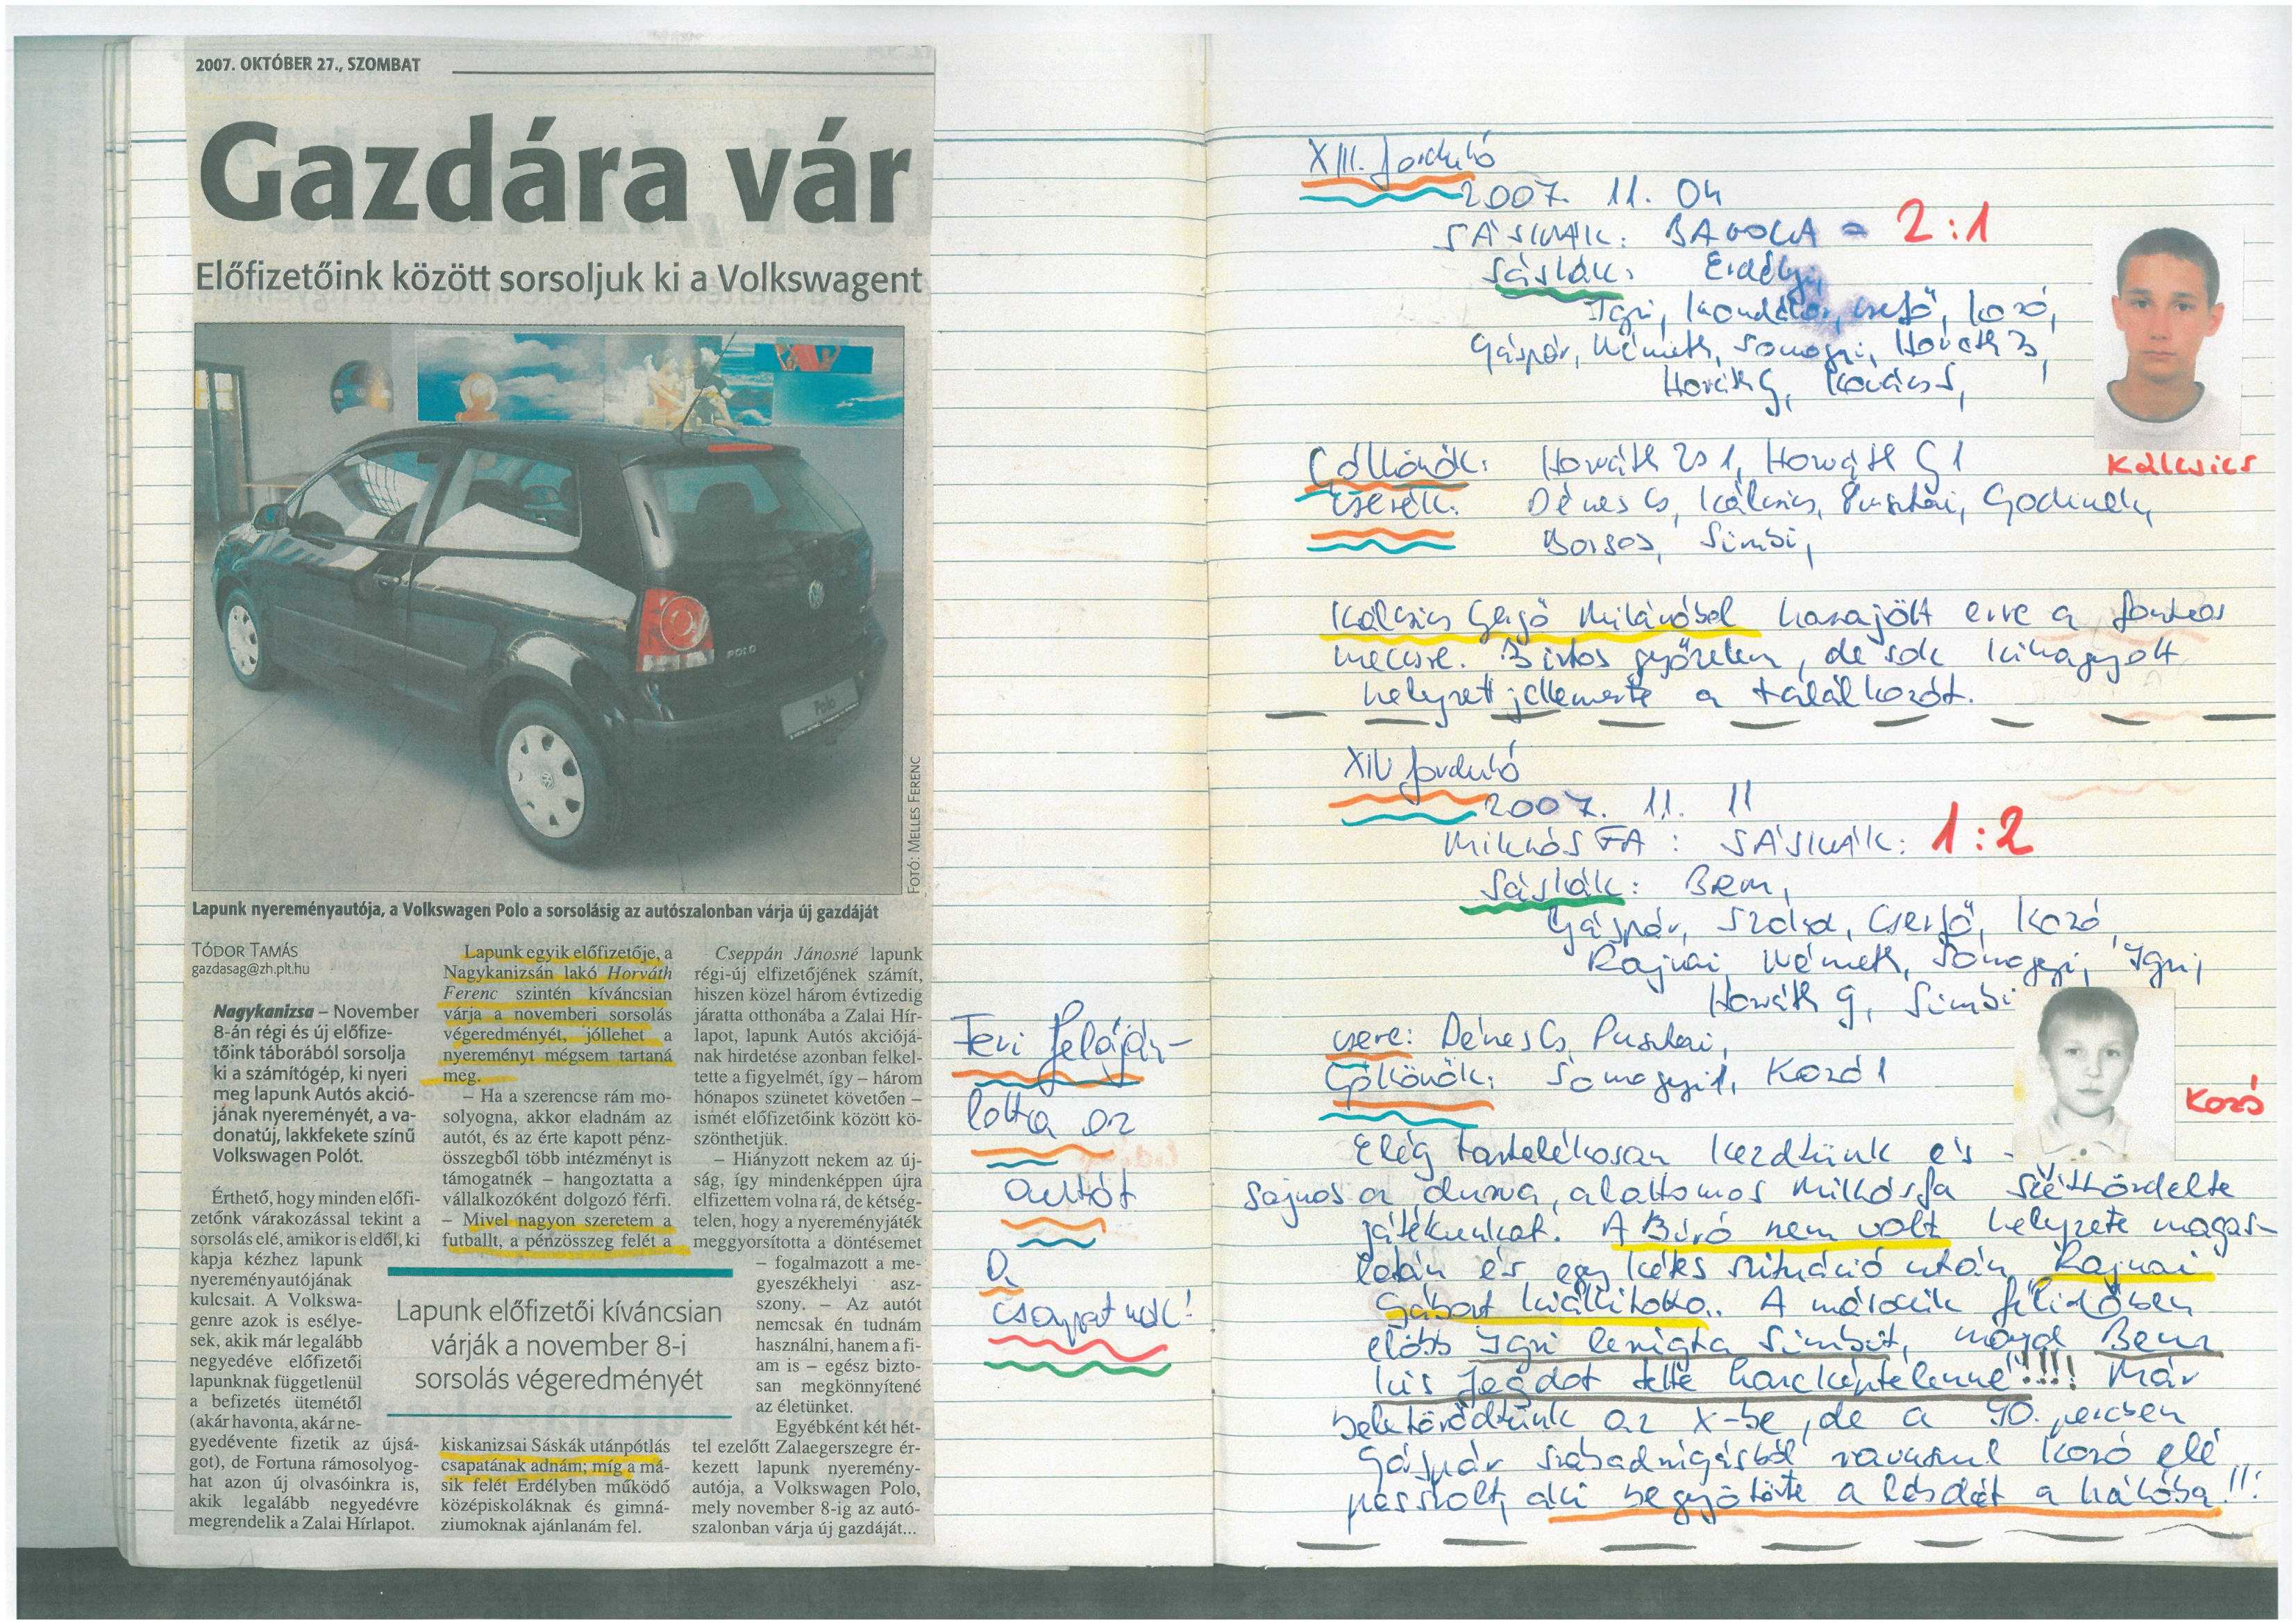 2007. OKTÓBER 27., SZOMBAT
Gazdára vár
Előfizetőink között sorsoljuk ki a Volkswagent
POLO
Polo
FOTÓ: MELLES FERENC
Lapunk nyereményautója, a Volkswagen Polo a sorsolásig az autószalonban várja új gazdáját
TÓDOR TAMÁS
gazdasag@zh.plt.hu
Nagykanizsa – November
8-án régi és új előfize-
tőink táborából sorsolja
ki a számítógép, ki nyeri
meg lapunk Autós akció-
jának nyereményét, a va-
donatúj, lakkfekete színű
Volkswagen Polót.
Érthető, hogy minden előfi-
zetőnk várakozással tekint a
sorsolás elé, amikor is eldől, ki
kapja kézhez lapunk
nyereményautójának
kulcsait. A Volkswa-
genre azok is esélye-
sek, akik már legalább
negyedéve előfizetői
lapunknak függetlenül
a befizetés ütemétől
(akár havonta, akár ne-
gyedévente fizetik az újsá-
got), de Fortuna rámosolyog-
hat azon új olvasóinkra is,
akik legalább negyedévre
megrendelik a Zalai Hírlapot.
Lapunk egyik előfizetője, a
Nagykanizsán lakó Horváth
Ferenc szintén kíváncsian
várja a novemberi sorsolás
végeredményét, jóllehet a
nyereményt mégsem tartaná
meg.
– Ha a szerencse rám mo-
solyogna, akkor eladnám az
autót, és az érte kapott pénz-
összegből több intézményt is
támogatnék – hangoztatta a
vállalkozóként dolgozó férfi.
– Mivel nagyon szeretem a
futballt, a pénzösszeg felét a
Lapunk előfizetői kíváncsian
várják a november 8-i
sorsolás végeredményét
kiskanizsai Sáskák utánpótlás
csapatának adnám; míg a má-
sik felét Erdélyben működő
középiskoláknak és gimná-
ziumoknak ajánlanám fel.
Cseppán Jánosné lapunk
régi-új elfizetőjének számít,
hiszen közel három évtizedig
járatta otthonába a Zalai Hír-
lapot, lapunk Autós akciójá-
nak hirdetése azonban felkel-
tette a figyelmét, így – három
hónapos szünetet követően –
ismét előfizetőink között kö-
szönthetjük.
– Hiányzott nekem az új-
ság, így mindenképpen újra
elfizettem volna rá, de kétség-
telen, hogy a nyereményjáték
meggyorsította a döntésemet
– fogalmazott a me-
gyeszékhelyi asz-
szony. – Az autót
nemcsak én tudnám
használni, hanem a fi-
am is – egész bizto-
san megkönnyítené
az életünket.
Egyébként két hét-
tel ezelőtt Zalaegerszegre ér-
kezett lapunk nyeremény-
autója, a Volkswagen Polo,
mely november 8-ig az autó-
szalonban várja új gazdáját...
Feri felaján-
lotta az
autót
a
csapatnak!
XIII. forduló
2007. 11. 04
SÁSKÁK: BAGOLA 2:1
Sáskák: Erdélyi,
Igri, Kondákor, Cserfő, Kozó,
Gáspár, Németh, Somogyi, Horváth Z,
Horváth G, Kovács S,
Kálcsics
Góllövők: Horváth Zs 1, Horváth G 1
Cserék: Dénes Cs, Kálcsics, Pusztai, Godinek,
Borsos, Simbi,
Kálcsics Gergő Milánóból hazajött erre a fontos
meccsre. Biztos győzelem, de sok kihagyott
helyzet jellemezte a találkozót.
XIV forduló
2007. 11. 11
MIKLÓSFA : SÁSKÁK: 1:2
Sáskák: Bem,
Gáspár, Cserfő, Kozó,
Rajnai, Németh, Somogyi, Igri,
Horváth G, Simbi
csere: Dénes Cs, Pusztai,
Góllövők: Somogyi 1, Kozó 1
Kozó
Elég tartalékosan kezdtünk és
sajnos a durva, alattomos Miklósfa széttördelte
játékunkat. A Bíró nem volt helyzete magas-
latán és egy kétes szituáció után Rajnai
Gábort kiállította. A második félidőben
előbb Igri lerúgta Simbit, majd Bem
kis Jagdot tette harcképtelenné!!!! Már
beletörődtünk az X-be, de a 90. percben
Gáspár szabadrúgásból ravaszul Kozó elé
passzolt, aki begyötörte a labdát a hálóba!!!